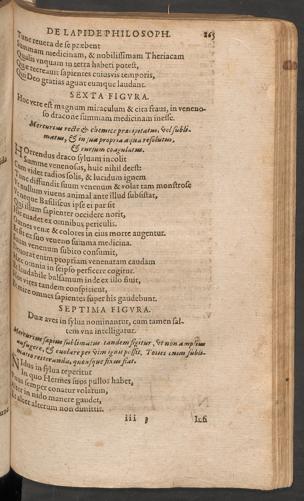 DE LAPIDE PHILOSOPH.
Tunc reuera de se præbent
Summam medicinam, & nobilissimam Theriacam
Qualis vnquam in terra haberi potest,
Quæ recreauit sapientes cuiusvis temporis,
Qui Deo gratias aguat eumque laudant.
SEXTA FIGVRA.
Hoc vere est magnum miraculum & citra fraus, in veneno-
so dracone summam medicinam inesse.
Mercurius recte & chemice præcipitatus, vel subli-
matus, & in sua propria aqua resolutus,
& rursum coagulatus.
HOrrendus draco syluam incolit
Summe venenosus, huic nihil deest:
Cum videt radios solis, & lucidum ignem
diffundit suum venenum & volat tam monstrose
nullum viuens animal ante illud subsistat,
Neque Basiliscus ipse ei par sit
Qui illum sapienter occidere norit,
euadet ex omnibus periculis.
venæ & colores in eius morte augentur.
ex suo veneno summa medicina.
Suum venenum subito consumit,
enim propriam venenatam caudam
omnia in seipso perficere cogitur.
laudabile balsamum inde ex illo fiuit,
vires tandem conspicient,
omnes sapientes super his gaudebunt.
SEPTIMA FIGVRA.
Duæ aves in sylua nominantur, cum tamen sal-
tem vna intelligatur.
Mercurius sæpius sublimatus tandem figitur, vt non amplius
aufugere, & euolare per vim ignis possit. Toties enim subli-
matio reiteranda, quousque fixus fiat.
NIdus in sylua reperitur
In quo Hermes suos pullos habet,
semper conatur volatum,
in nido manere gaudet,
alter alterum non dimittit.
iii